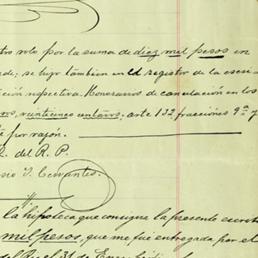 tro solo por la suma de diez mil pesos en
se tiljo tambien en el registro de la escri
ción respectiva. Honorarios de cancelación en los
veinticinco centavos; arte 132 fracciones 9ª y
por razón.
del R. P.
V. Cervantes.
la hipoteca que consigna la presente escrit
mil pesos, que me fué entregada por el